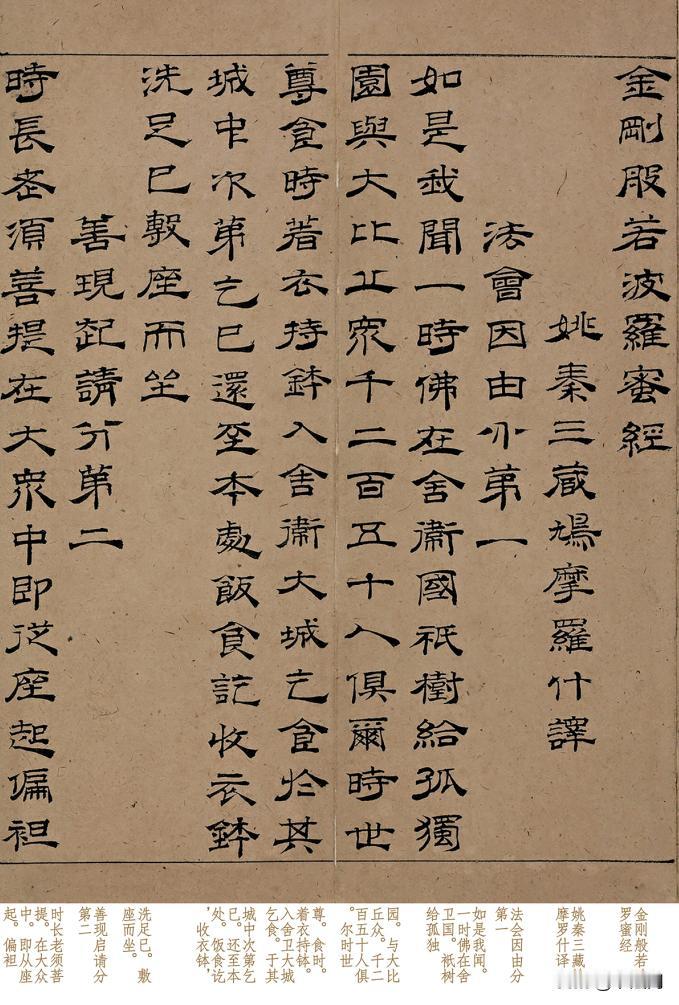 金剛般若波羅蜜經
姚秦三藏鳩摩羅什譯
法會因由分第一
如是我聞一時佛在舍衛國祇樹給孤獨
園與大比丘眾千二百五十人俱爾時世
尊食時著衣持鉢入舍衛大城乞食於其
城中次第乞已還至本處飯食訖收衣鉢
洗足已敷座而坐
善現起請分第二
時長老須菩提在大眾中即從座起偏袒
金刚般若
罗蜜经
姚秦三藏
摩罗什译
法会因由分
第一
如是我闻。
一时佛在舍
卫国。祇树
给孤独
园。与大比
丘众。千二
百五十人俱
。尔时世
尊。食时。
着衣持钵。
入舍卫大城
乞食。于其
城中次第乞
已。还至本
处。饭食讫
,收衣钵,
洗足已。敷
座而坐。
善现启请分
第二
时长老须菩
提。在大众
中。即从座
起。偏袒